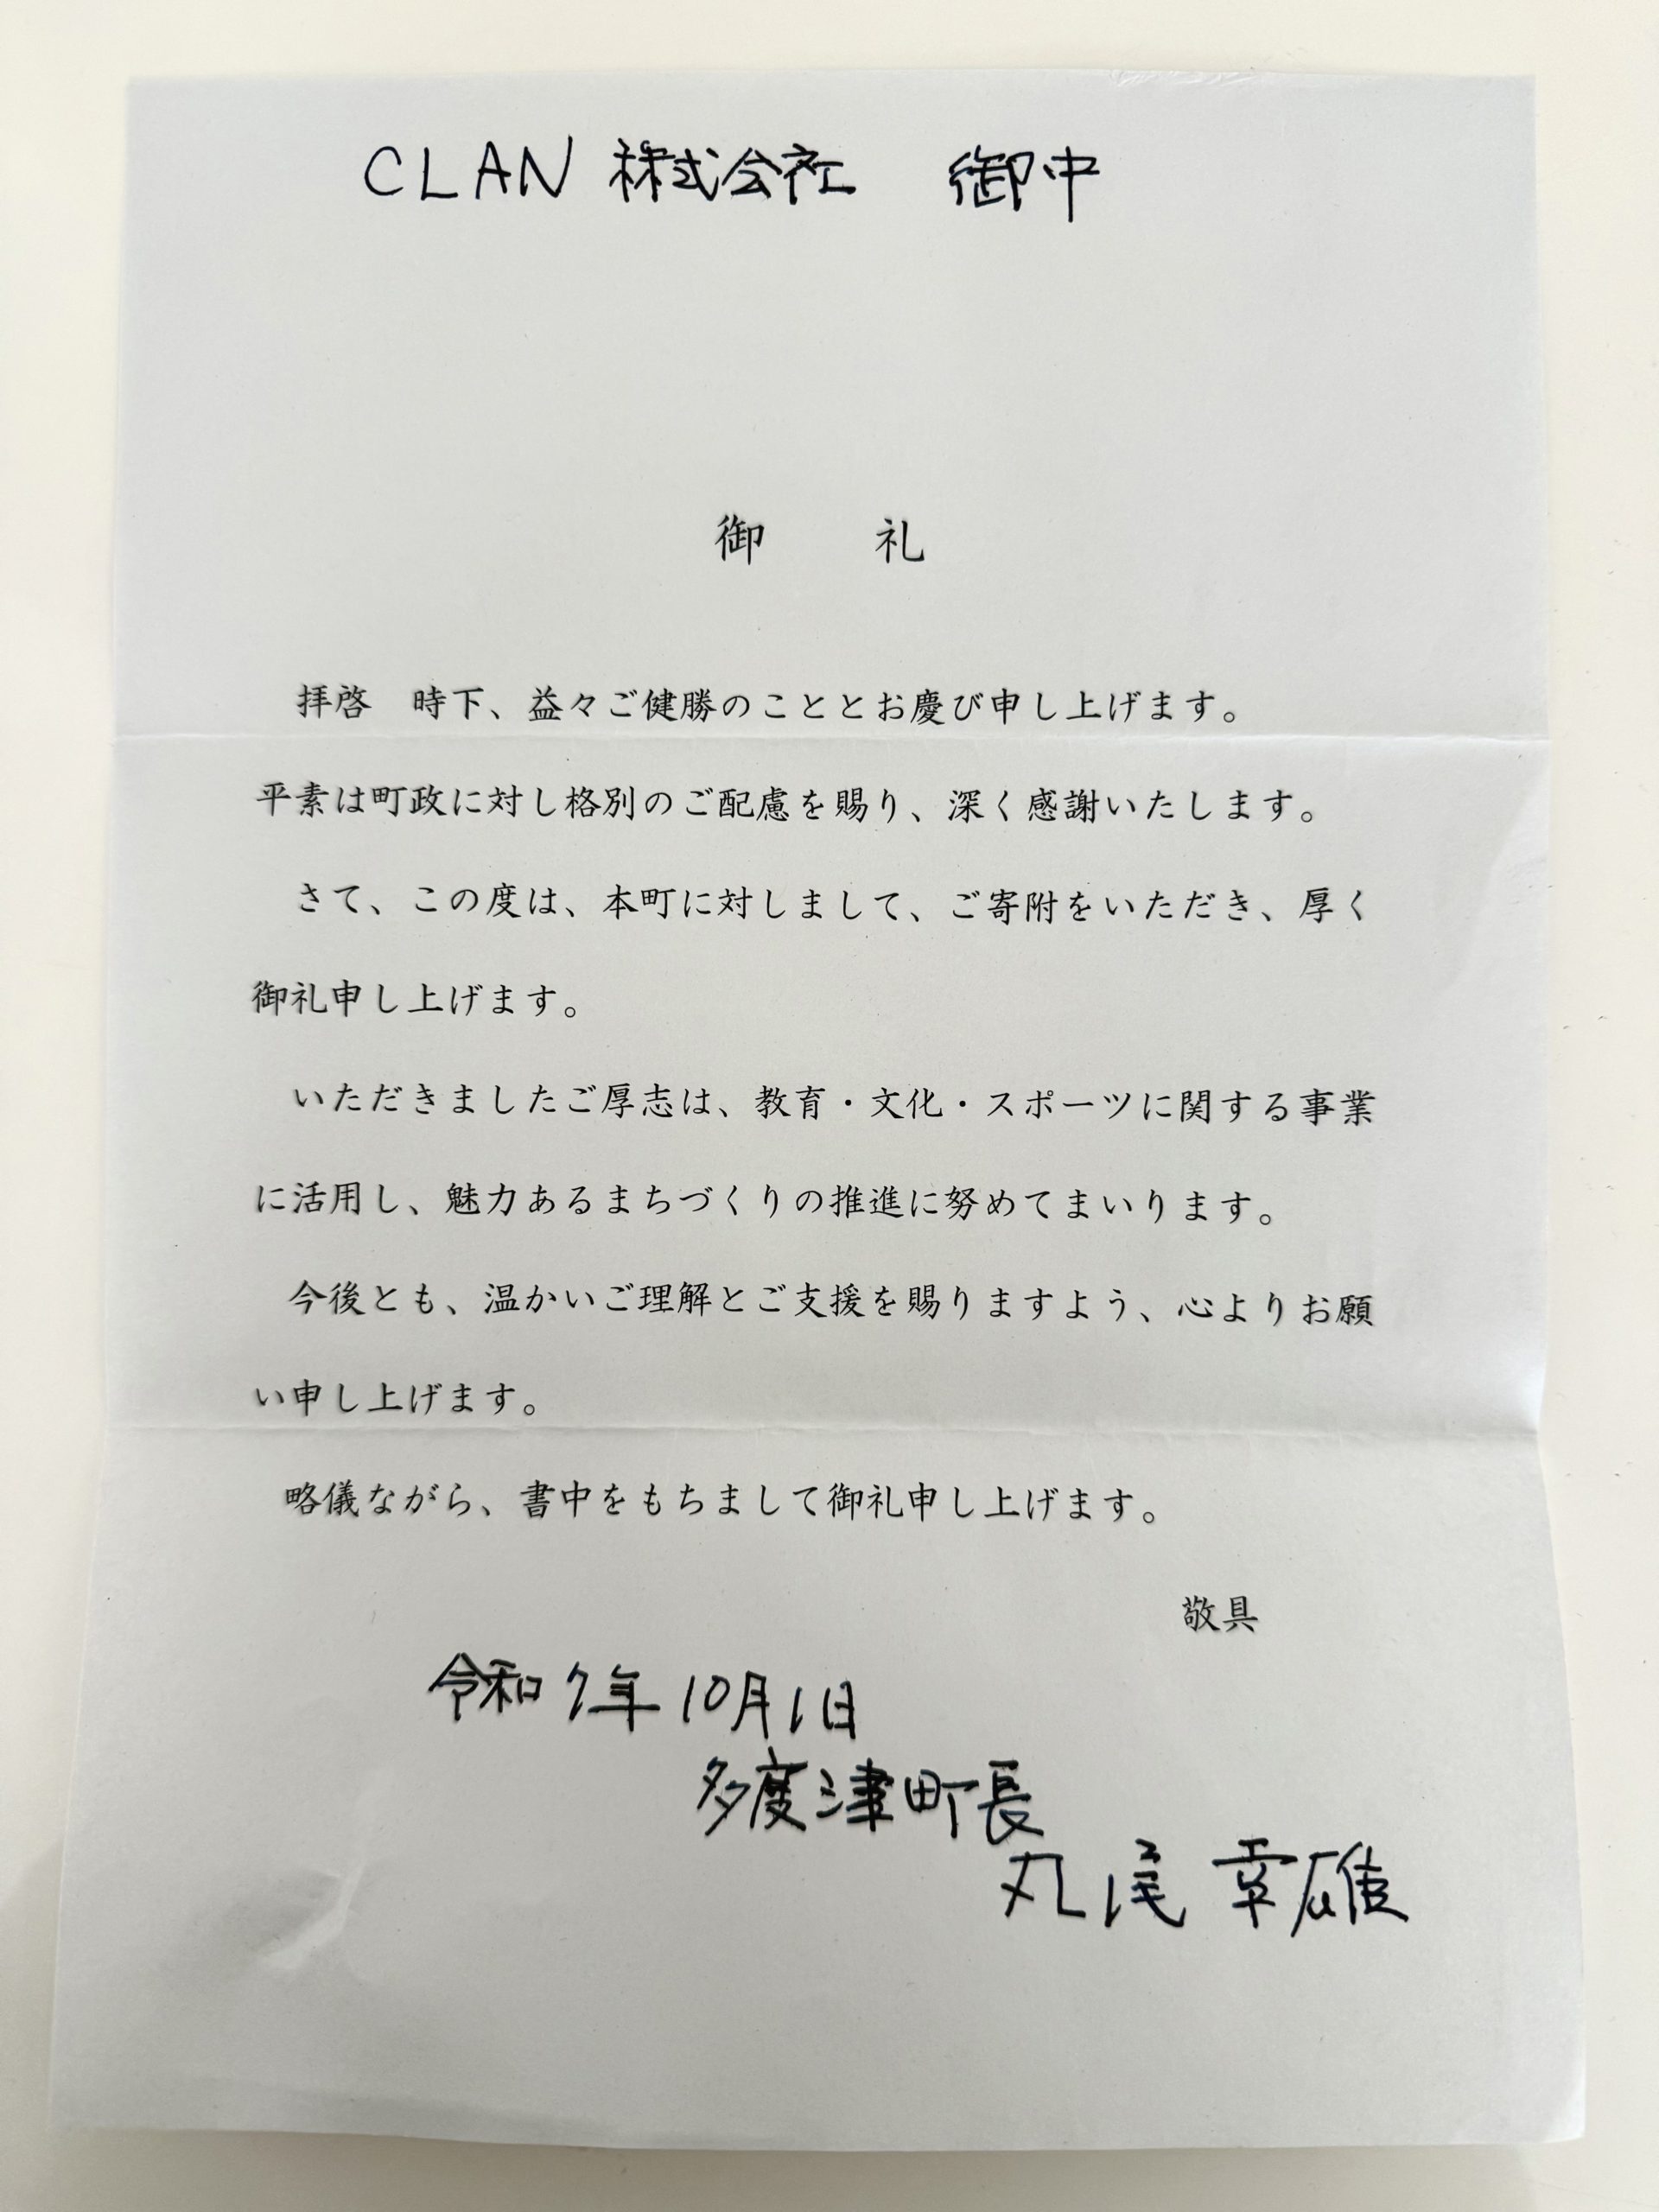 CLAN 株式会社　御中
御　　礼
拝啓　時下、益々ご健勝のこととお慶び申し上げます。
平素は町政に対し格別のご配慮を賜り、深く感謝いたします。
さて、この度は、本町に対しまして、ご寄附をいただき、厚く
御礼申し上げます。
いただきましたご厚志は、教育・文化・スポーツに関する事業
に活用し、魅力あるまちづくりの推進に努めてまいります。
今後とも、温かいご理解とご支援を賜りますよう、心よりお願
い申し上げます。
略儀ながら、書中をもちまして御礼申し上げます。
敬具
令和7年10月1日
多度津町長
丸尾 幸雄